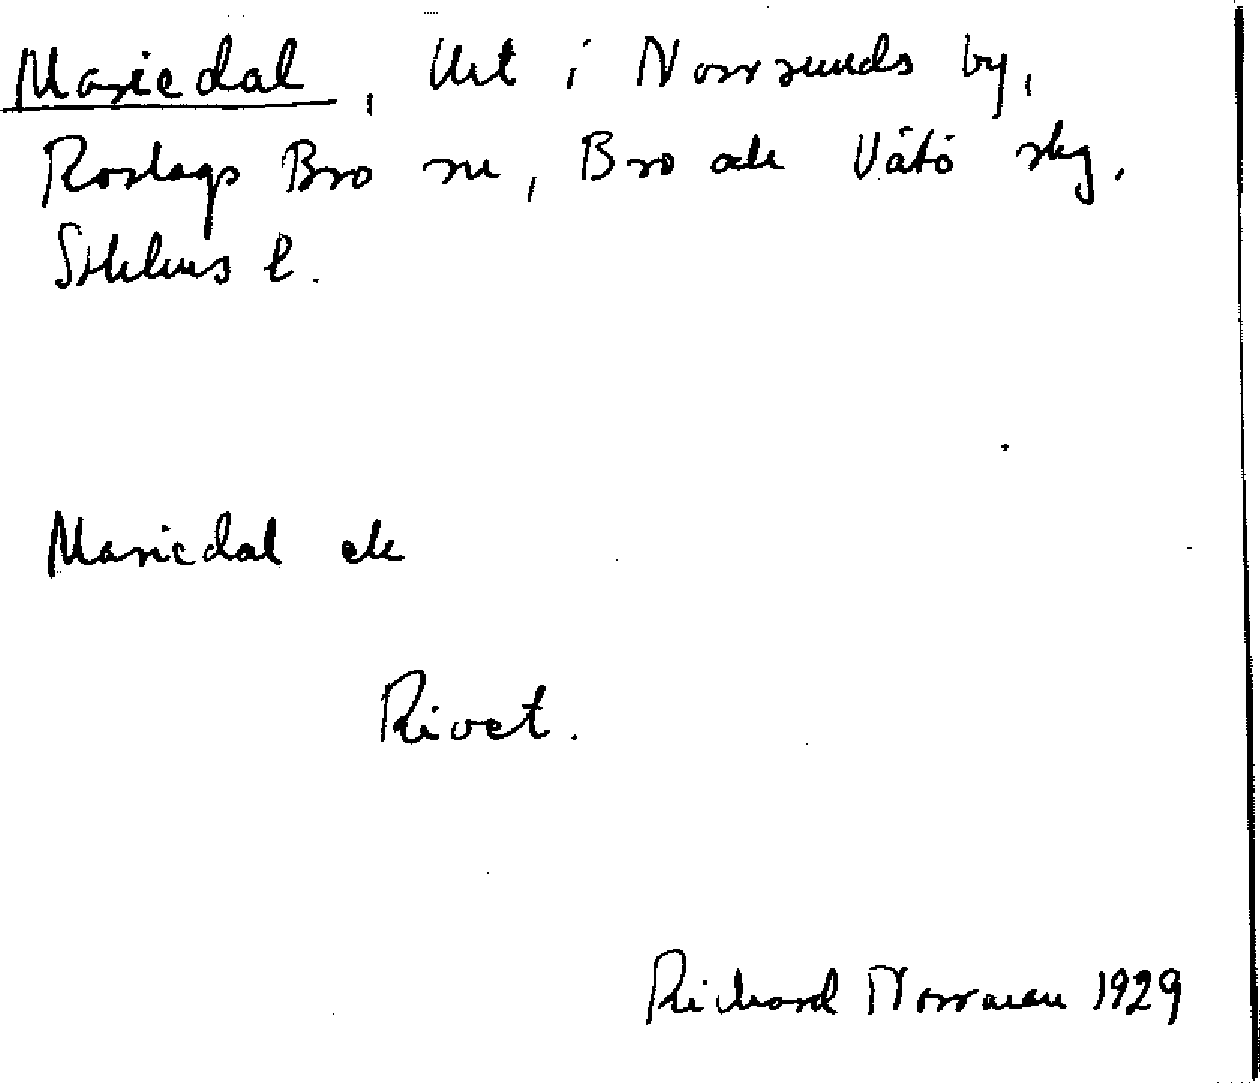 Mariedal, Urt i Norrsunds by,
Roslags Bro sn, Bro och Vätö skg,
Sthlms l.
Mariedal ell
Rivet.
Richard Norrman 1929